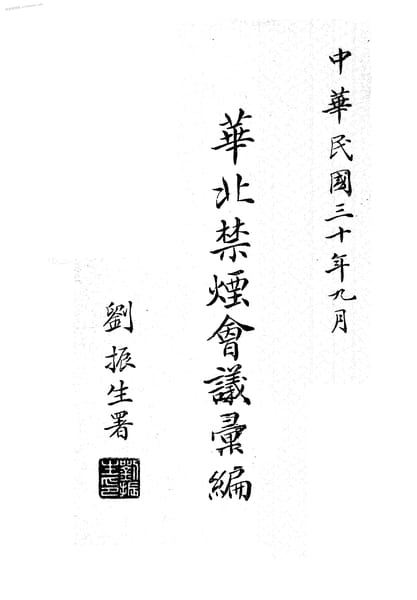 中華民國三十年九月
華北禁煙會議彙編
劉振生署
劉振生印